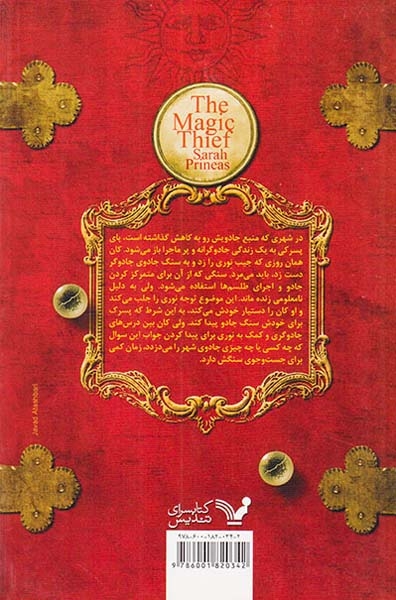 The
Magic
Thief
Sarah
Prineas
در شهری که منبع جادویش رو به کاهش گذاشته است، پای
پسرکی به یک زندگی جادوگرانه و پر ماجرا باز می‌شود. کان
همان روزی که جیب نوری را زد و به سنگ جادوی جادوگر
دست زد، باید می‌مرد. سنگی که از آن برای متمرکز کردن
جادو و اجرای طلسم‌ها استفاده می‌شود. ولی به دلیل
نامعلومی زنده ماند. این موضوع توجه نوری را جلب می‌کند
و او کان را دستیار خودش می‌کند، به این شرط که پسرک
برای خودش سنگ جادو پیدا کند. ولی کان بین درس‌های
جادوگری و کمک به نوری برای پیدا کردن جواب این سوال
که چه کسی یا چه چیزی جادوی شهر را می‌دزدد، زمان کمی
برای جست‌وجوی سنگش دارد.
Javad Atashbari
کتابسرای
تندیس
۹۷۸-۶۰۰-۱۸۲-۰۳۴-۲
9 786001 820342